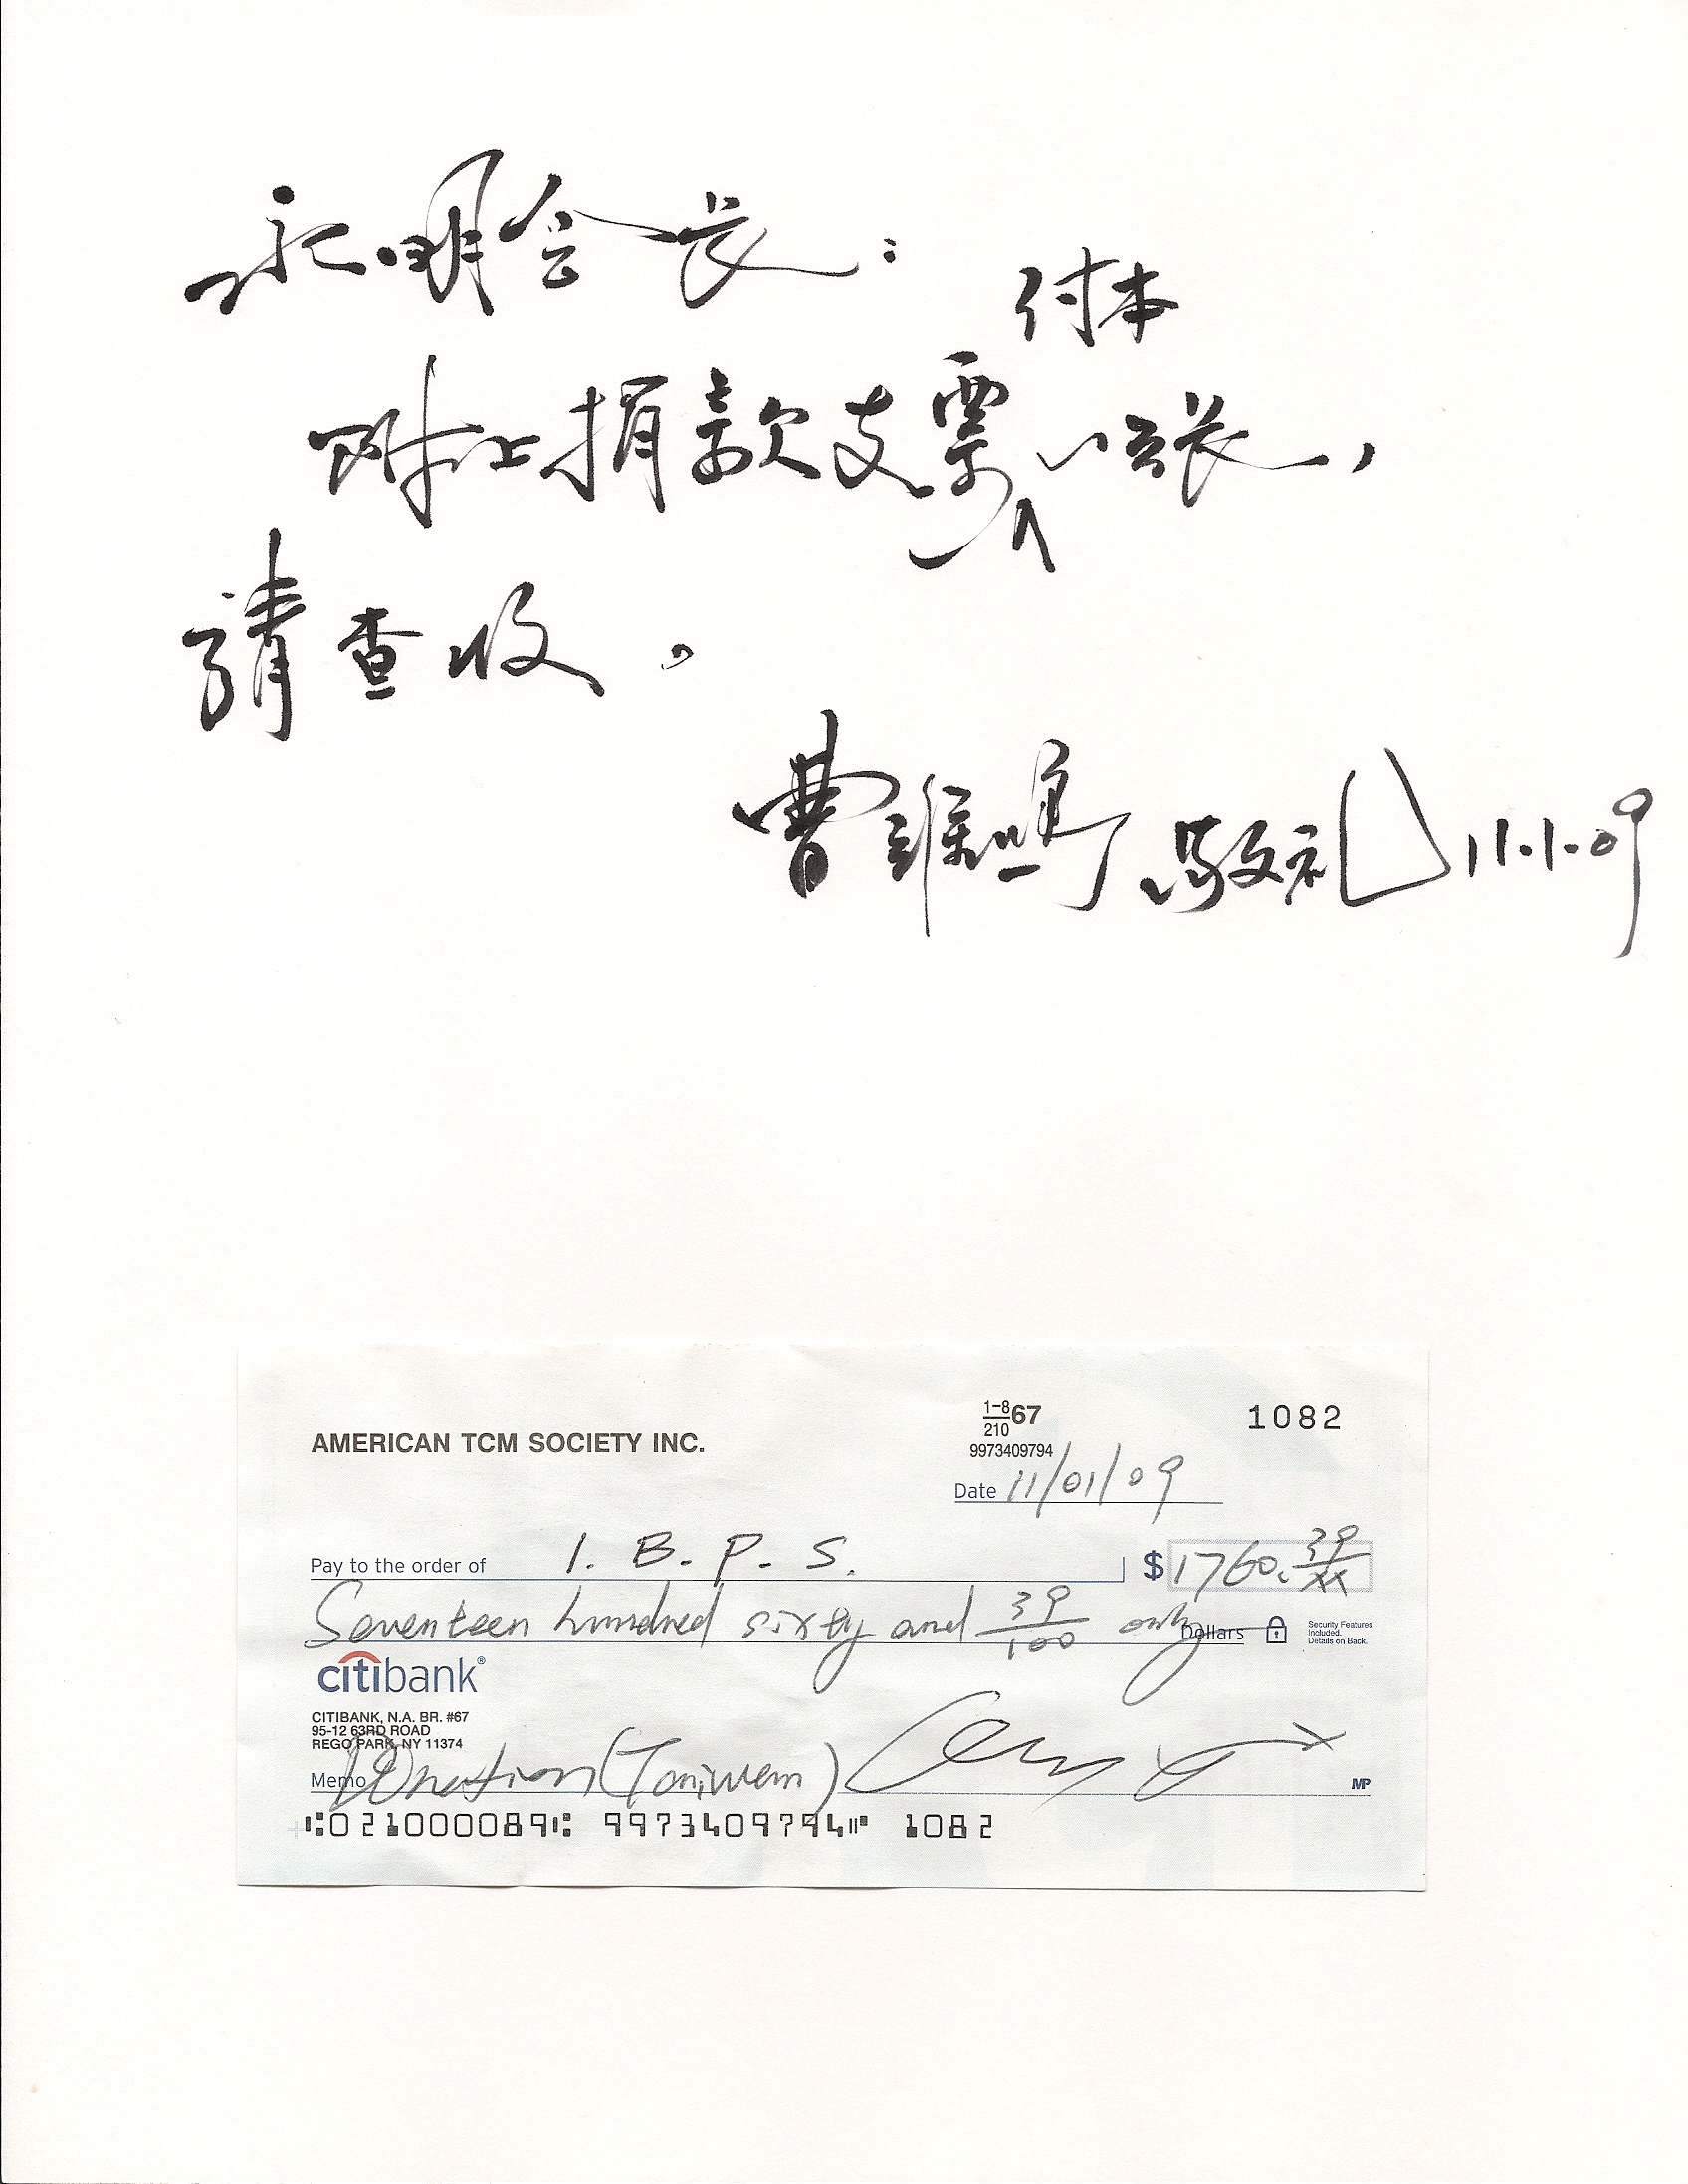 永明会长：
付本
附上捐款支票一张，
請查收。
曹 敬礼 11.1.09
AMERICAN TCM SOCIETY INC.
1-8/210 67
1082
9973409794
Date 11/01/09
Pay to the order of I. B. P. S. $ 1760. 39/xx
Seventeen hundred sixty and 39/100 only Dollars
Security Features
Included.
Details on Back.
citibank®
CITIBANK, N.A. BR. #67
95-12 63RD ROAD
REGO PARK, NY 11374
Memo Donation (Taiwan)
MP
⑆021000089⑆ 9973409794⑈ 1082